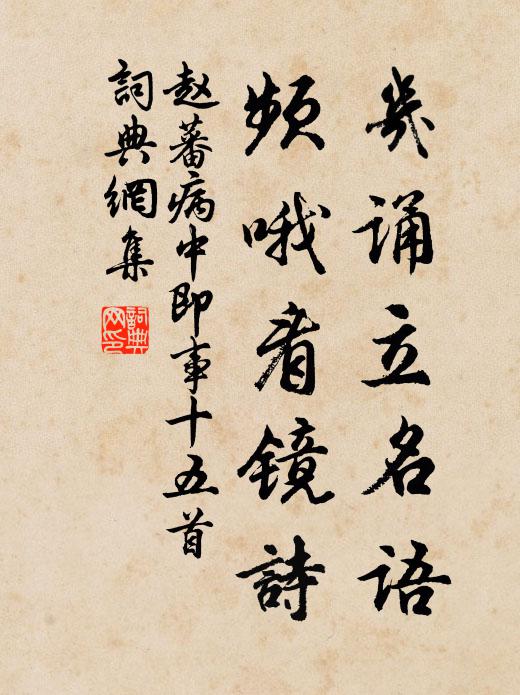 幾诵立名语
频哦看镜詩
赵蕃病中即事十五首
詞典網集
詞典网印